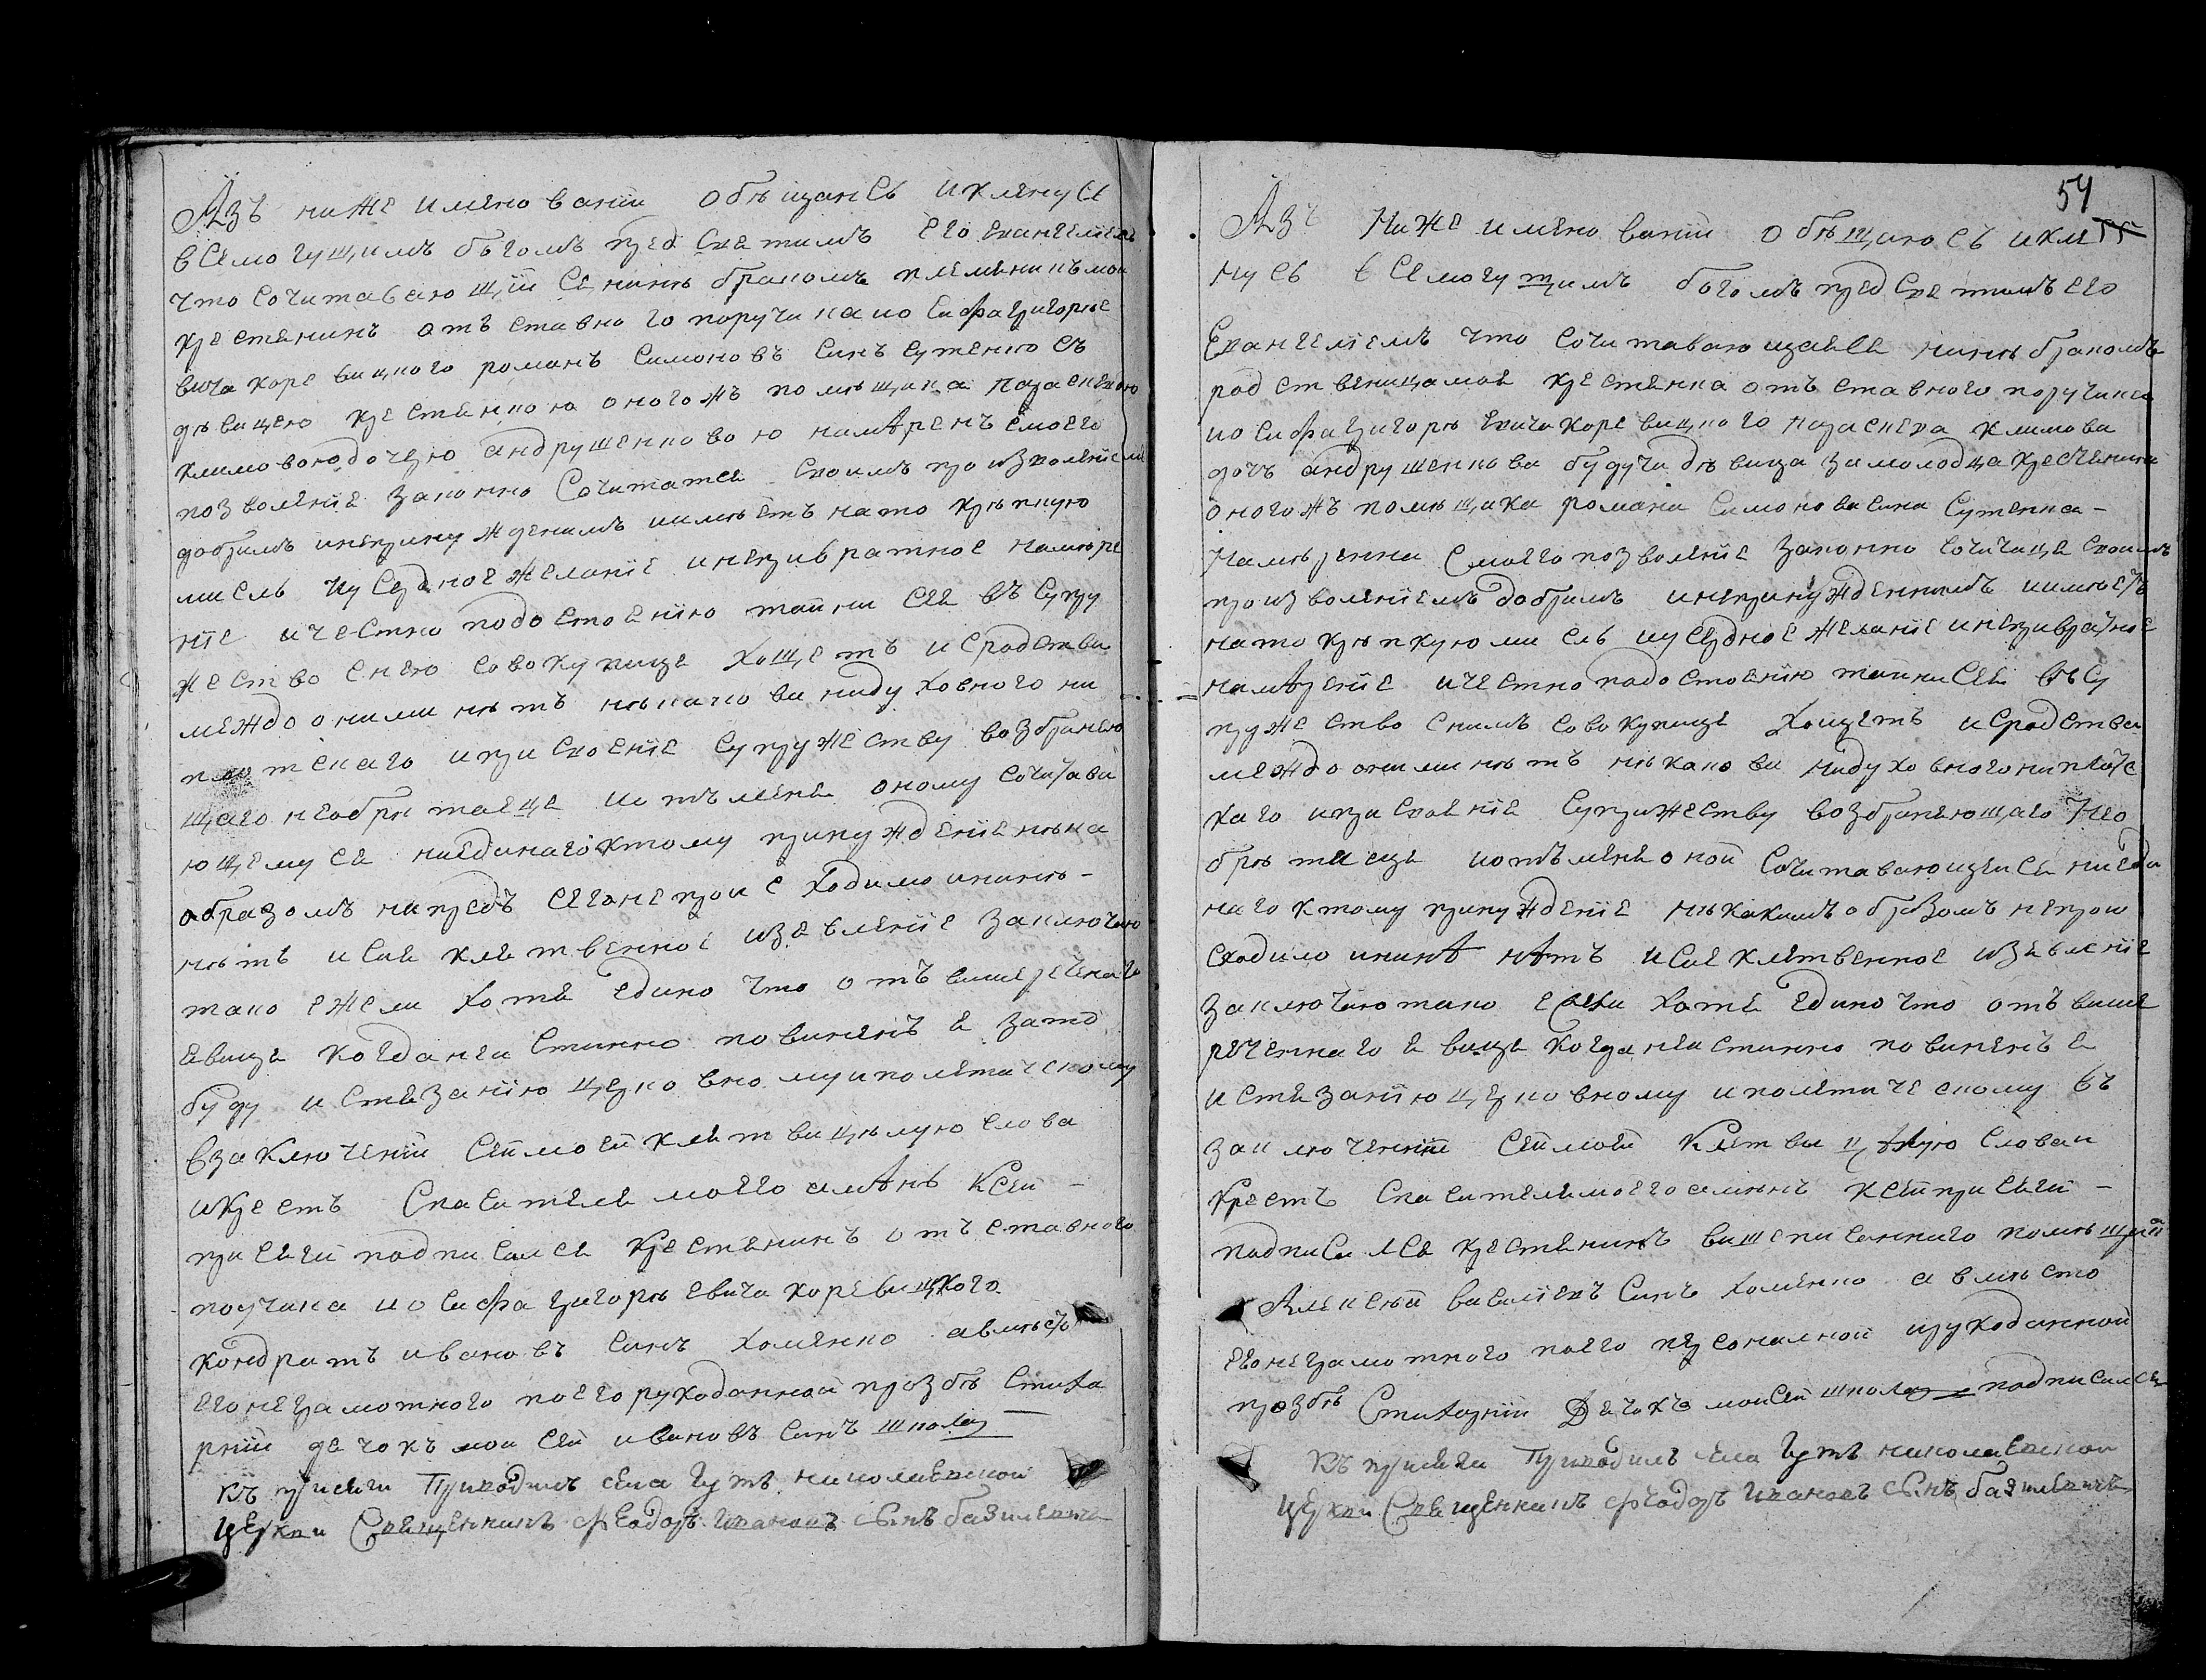 Азъ ниже имяновании обѣщаюсь и клянуся
всемогущимъ богомъ пред святимъ его евангелием
что сочитавающий ся нинѣ бракомъ племеникъ мой
крестянинъ отъ ставного поручика иосифа григорие
вича коревицкого романъ симоновъ синъ сутенко съ
дѣвицею крестянкою оногожъ помѣщика параскевою
климовою дочерю андрущенковою намѣренъ с моего
позволения законно сочитатся своимъ произволениемъ
добримъ инепринужденимъ иимѣетъ на то крѣпкую
мисль иусердное желание инепривратное намѣре
ние и честно подостоянию тайни сея въ супру
жество с нею совокупитце хощетъ и сродства
междо ними нѣтъ нѣкаково ни духовного ни
плотского и присвоение супружеству возбраняю
щаго необрѣтаеце иотъ меня оному сочитава
ющемуся ниединаго ктому принуждения нѣка
образомъ напредъ сего непроисходило ининѣ-
нѣтъ и сие клятвенное изявление заключаю
тако ежели хотя едино что отъ вишереченаго
явице когда неистинно повиненъ я зато
буду истязанию церковному и полѣтическому
взаключений сей моей клятви цѣлую слова
икрестъ спасителя моего аминь ксей-
присяги подписался крестянинъ отъставного
поручика иосифа григорѣевича коревицкого
кондратъ ивановъ синъ хоменко авмѣсто
его неграмотного поего рукоданной прозбѣ стиха
рний дячокъ мойсей ивановъ синъ школа
Къ присяги приводилъ села гутъ николаевской
церкви священникъ феодоръ ивановъ сынъ базилевичъ
54
Азъ ниже имяновании обѣщаюсъ икля
нусь всемогущимъ богомъ пред святимъ его
евангелиемъ что сочитавающаяся нинѣ бракомъ
родственица моя крестянка отъ ставного поручика
иосифа григорѣевича коревицкого параскева климова
дочъ андрущенкова будучи дѣвица за молодца крестянина
оногожъ помѣщика романа симонова сина сутенка-
намѣренна с моего позволения законно сочитаце своимъ
произволениемъ добримъ инепринужденнимъ иимѣетъ
на то крѣпкую мисль иусердное желание инепривратное
намѣрение ичестно подостоянию тайни сея въ су
пружество с нимъ совокупице хощетъ и сродства
междо ними нѣтъ нѣкаково ни духовного ни плотс
каго и присвоение супружеству возбраняющаго нео
брѣтаеце иотъ меня оной сочитавающейся ниеди
наго ктому принуждения нѣкакимъ образомъ непрои
сходило ининѣ нѣтъ исие клятвенное изявление
заключаю тако если хотя едино что отъ више
реченнаго явице когда неистинно повиненъ я
истязанию церковному и полѣтическому въ
заключенние сей моей клятви цѣлую слова и
крестъ спасителя моего аминь ксей присяги-
подписался крестянинъ вишеписанного помѣщика
Алексѣй василиевъ синъ хоменко авмѣсто
его неграмотного поего персоналной ирукоданной
прозбѣ стихарний дячокъ мойсей школа подписался
Къ присяги приводилъ села гутъ николаевской
церкви священникъ феодоръ ивановъ сынъ базилевичъ